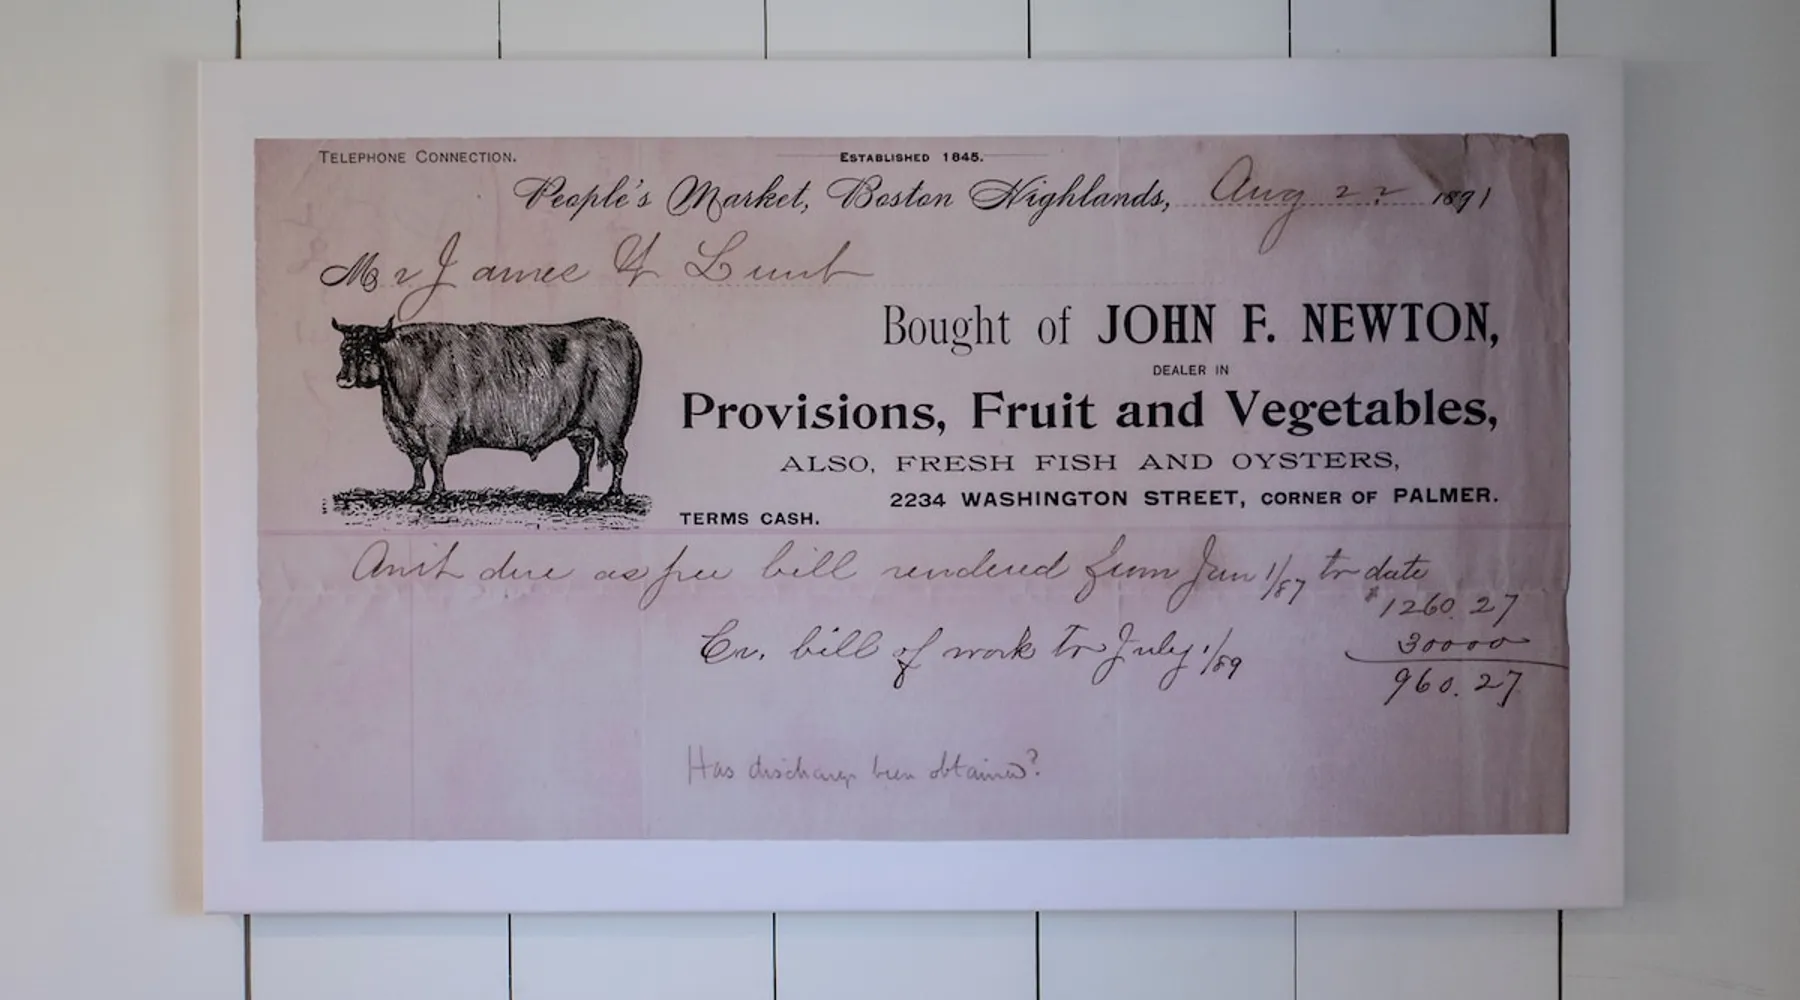 TELEPHONE CONNECTION.
ESTABLISHED 1845.
People's Market, Boston Highlands, Aug 22 1891
Mr James Lunt
Bought of JOHN F. NEWTON,
DEALER IN
Provisions, Fruit and Vegetables,
ALSO, FRESH FISH AND OYSTERS,
2234 WASHINGTON STREET, CORNER OF PALMER.
TERMS CASH.
Am't due as per bill rendered from Jan 1/87 to date
$1260.27
Cr. bill of work to July 1/89
30000
960.27
Has discharge been obtained?